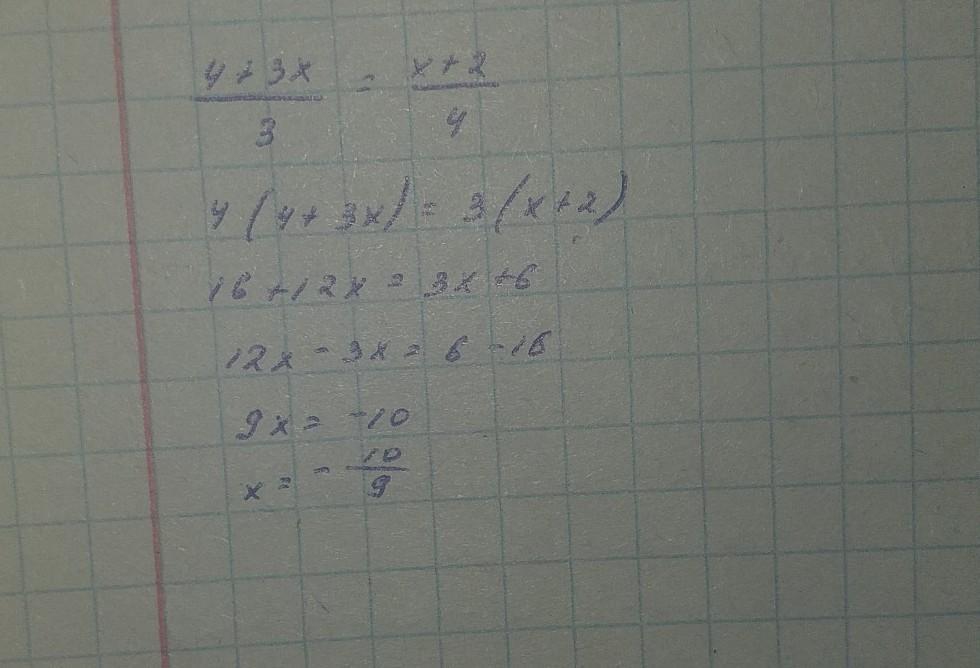 4+3x/3 = x+2/4
4(4+3x) = 3(x+2)
16+12x = 3x+6
12x-3x = 6-16
9x = -10
x = -10/9